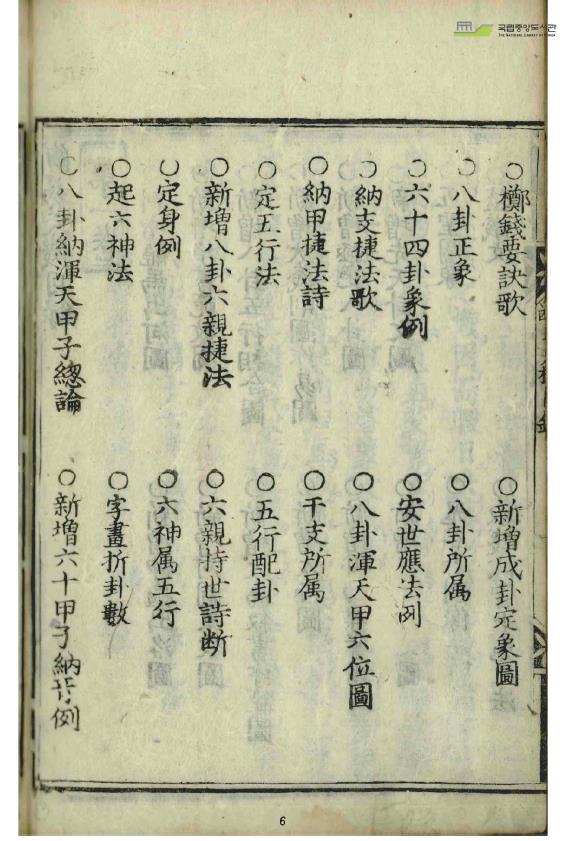 국립중앙도서관
THE NATIONAL LIBRARY OF KOREA
○擲錢要訣歌 ○新增成卦定象圖
○八卦正象 ○八卦所属
○六十四卦象例 ○安世應法例
○納支捷法歌 ○八卦渾天甲六位圖
○納甲捷法詩 ○干支所属
○定五行法 ○五行配卦
○新增八卦六親捷法 ○六親持世詩断
○定身例 ○六神属五行
○起六神法 ○字畫折卦數
○八卦納渾天甲子總論 ○新增六十甲子納音例
6